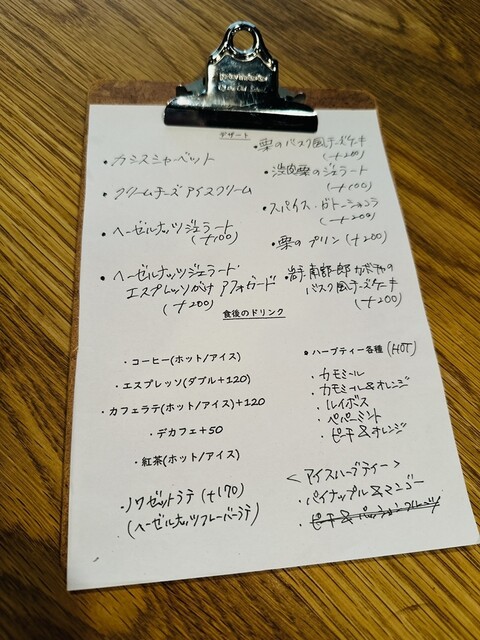 デザート
・カシスシャーベット
・クリームチーズアイスクリーム
・ヘーゼルナッツジェラート
(+100)
・ヘーゼルナッツジェラート
エスプレッソがけ アフォガード
(+200)
・栗のバスク風チーズケーキ
(+200)
・渋皮栗のジェラート
(+100)
・スパイス・ガトーショコラ
(+200)
・栗のプリン (+200)
・岩手南部一郎カボチャの
バスク風チーズケーキ
(+200)
食後のドリンク
・コーヒー(ホット/アイス)
・エスプレッソ(ダブル+120)
・カフェラテ(ホット/アイス)+120
・デカフェ+50
・紅茶(ホット/アイス)
・ノワゼットラテ (+170)
(ヘーゼルナッツフレーバーラテ)
・ハーブティー各種 (HOT)
・カモミール
・カモミール&オレンジ
・ルイボス
・ペパーミント
・ピーチ&オレンジ
<アイスハーブティー>
・パイナップル&マンゴー
・ピーチ&パッションフルーツ